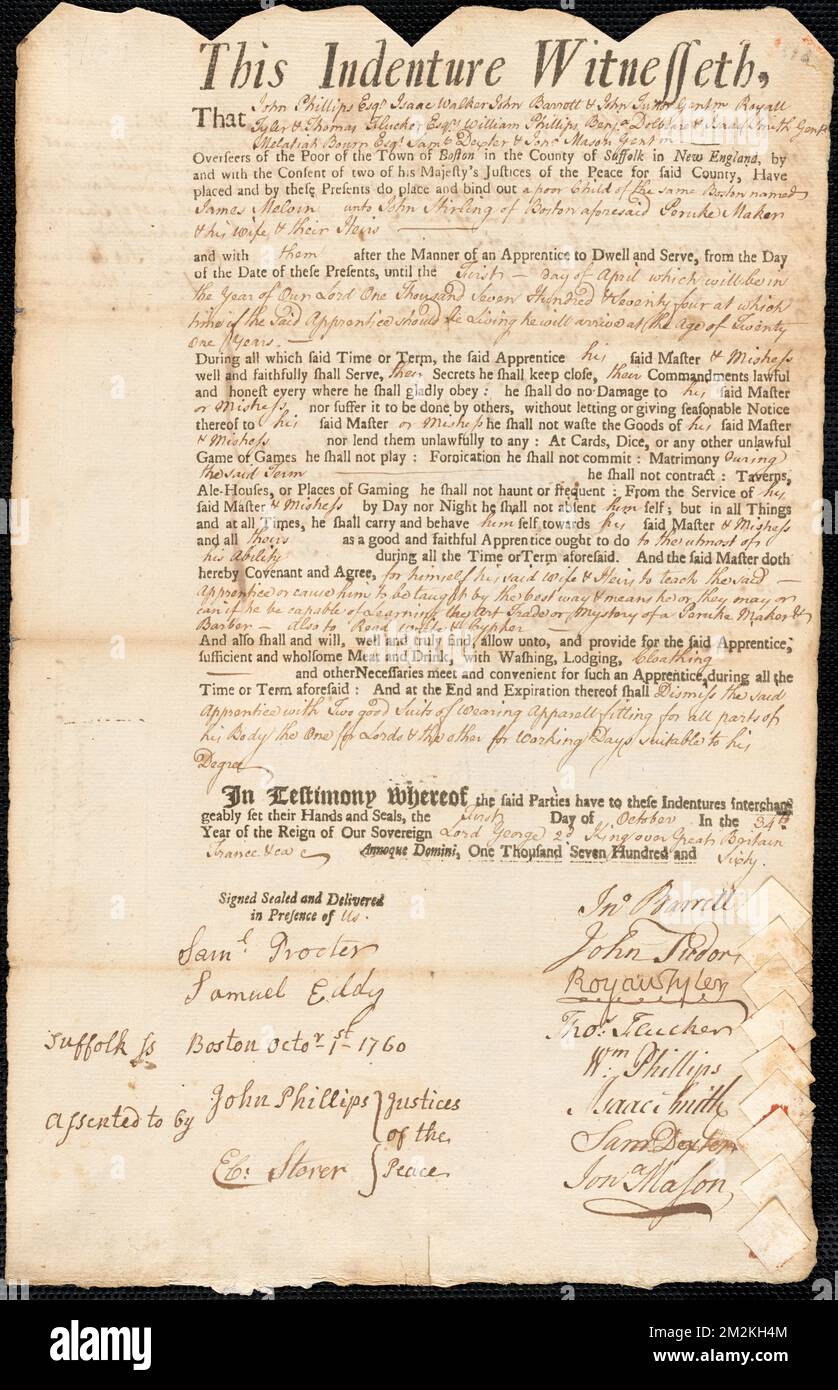 This Indenture Witnesseth,
That John Phillips Esqr. Isaac Walker John Barrett & John Tudor Gentm Royall
Tyler & Thomas Flucker Esqrs William Phillips Benja Dolbear & Isaac Smith Gentn
Melatiah Bourn Esqr. Saml Dexter & Jona Mason Gentm
Overseers of the Poor of the Town of Boston in the County of Suffolk in New England, by
and with the Consent of two of his Majesty's Justices of the Peace for said County, Have
placed and by these Presents do place and bind out a poor Child of the same Boston named
James Melvin unto John Stirling of Boston aforesaid Peruke Maker
& his Wife & their Heirs
and with them after the Manner of an Apprentice to Dwell and Serve, from the Day
of the Date of these Presents, until the First Day of April which will be in
the Year of Our Lord One Thousand Seven Hundred & Seventy four at which
time if the said Apprentice should be Living he will arrive at the Age of Twenty
One Years.
During all which said Time or Term, the said Apprentice his said Master & Mistress
well and faithfully shall Serve, their Secrets he shall keep close, their Commandments lawful
and honest every where he shall gladly obey : he shall do no Damage to his said Master
or Mistress nor suffer it to be done by others, without letting or giving seasonable Notice
thereof to his said Master or Mistress he shall not waste the Goods of his said Master
& Mistress nor lend them unlawfully to any : At Cards, Dice, or any other unlawful
Game or Games he shall not play : Fornication he shall not commit : Matrimony during
the said Term he shall not contract : Taverns,
Ale-Houses, or Places of Gaming he shall not haunt or frequent : From the Service of his
said Master & Mistress by Day nor Night he shall not absent him self; but in all Things
and at all Times, he shall carry and behave him self towards his said Master & Mistress
and all theirs as a good and faithful Apprentice ought to do to the utmost of
his Ability during all the Time or Term aforesaid. And the said Master doth
hereby Covenant and Agree, for himself his said Wife & Heirs to teach the said
Apprentice or cause him to be taught by the best way & means he or they may or
can if he be capable of Learning the Art Trade or Mystery of a Peruke Maker &
Barber – also to Read write & Cypher
And also shall and will, well and truly find, allow unto, and provide for the said Apprentice,
sufficient and wholsome Meat and Drink, with Washing, Lodging, Cloathing
and other Necessaries meet and convenient for such an Apprentice, during all the
Time or Term aforesaid : And at the End and Expiration thereof shall Dismiss the said
Apprentice with Two good Suits of Wearing Apparell fitting for all parts of
his Body the One for Lords & the other for Working Days suitable to his
Degree
In Testimony whereof the said Parties have to these Indentures interchan
geably set their Hands and Seals, the First Day of October In the 34th
Year of the Reign of Our Sovereign Lord George 2d King over Great Britain
France &ca Annoque Domini, One Thousand Seven Hundred and Sixty.
Signed Sealed and Delivered
in Presence of Us.
Saml Procter
Samuel Eddy
Suffolk ss Boston Octor 1st 1760
Assented to by John Phillips Justices
of the
Eb. Storer Peace
Jno Barrett
John Tudor
Royall Tyler
Thos. Flucker
Wm Phillips
Isaac Smith
Sam Dexter
Jona Mason
alamy
Image ID: 2M2KH4M
www.alamy.com